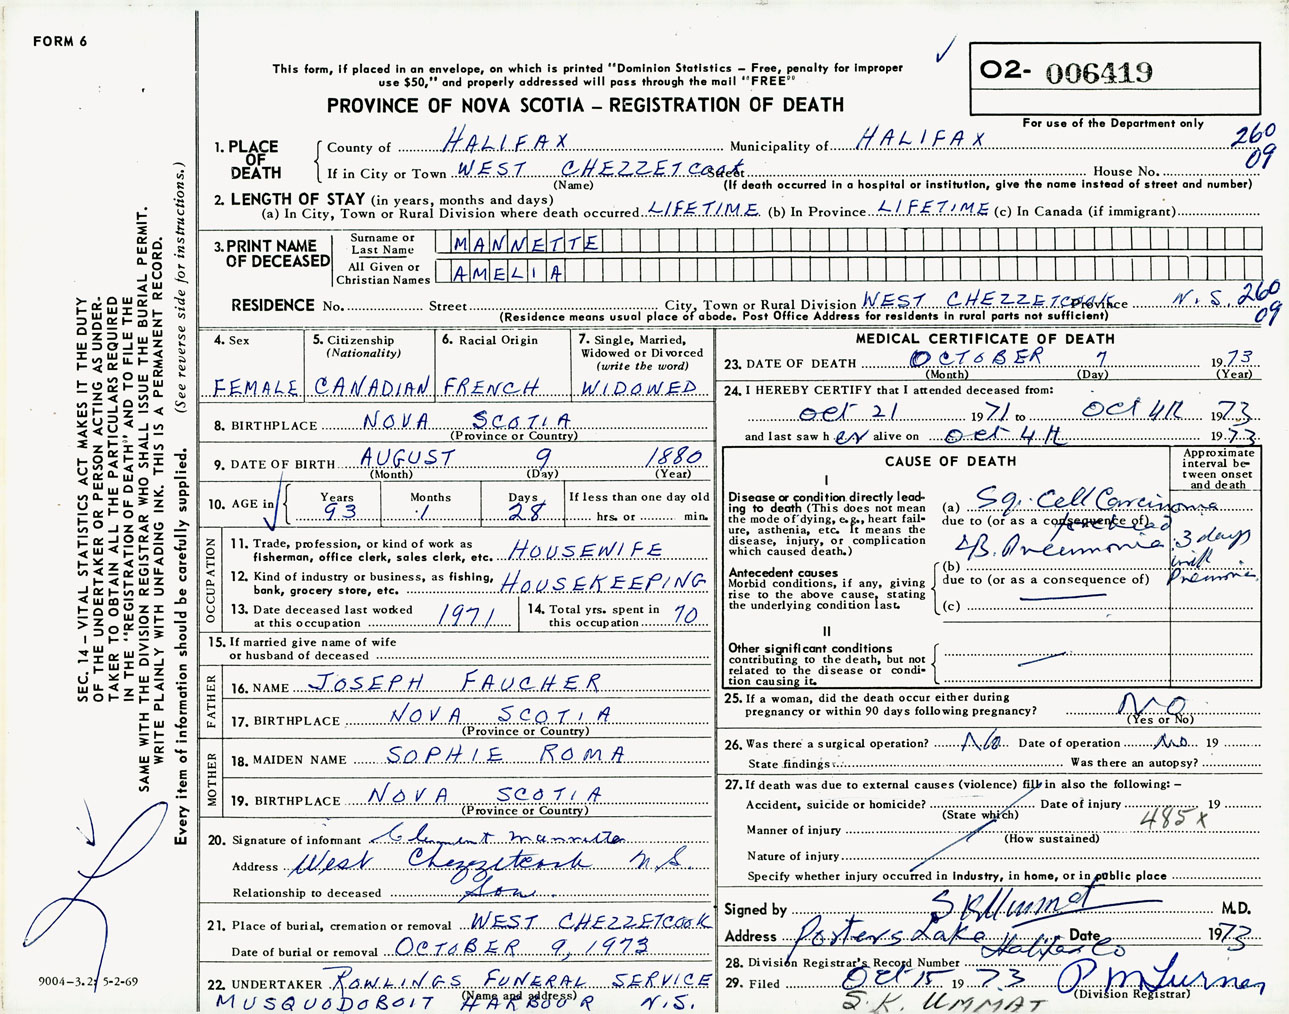 FORM 6
O2- 006419
For use of the Department only
This form, if placed in an envelope, on which is printed "Dominion Statistics – Free, penalty for improper
use $50," and properly addressed will pass through the mail "FREE"
PROVINCE OF NOVA SCOTIA – REGISTRATION OF DEATH
1. PLACE OF DEATH County of HALIFAX Municipality of HALIFAX 260
If in City or Town WEST CHEZZETCOOK Street House No. 09
(Name) (If death occurred in a hospital or institution, give the name instead of street and number)
2. LENGTH OF STAY (in years, months and days)
(a) In City, Town or Rural Division where death occurred LIFETIME (b) In Province LIFETIME (c) In Canada (if immigrant)
3. PRINT NAME OF DECEASED Surname or Last Name MANNETTE
All Given or Christian Names AMELIA
RESIDENCE No. Street City, Town or Rural Division WEST CHEZZETCOOK Province N.S. 260
(Residence means usual place of abode. Post Office Address for residents in rural parts not sufficient) 09
4. Sex 5. Citizenship (Nationality) 6. Racial Origin 7. Single, Married, Widowed or Divorced (write the word)
FEMALE CANADIAN FRENCH WIDOWED
8. BIRTHPLACE NOVA SCOTIA
(Province or Country)
9. DATE OF BIRTH AUGUST 9 1880
(Month) (Day) (Year)
10. AGE in Years Months Days If less than one day old
93 1 28 hrs. or min.
OCCUPATION
11. Trade, profession, or kind of work as
fisherman, office clerk, sales clerk, etc. HOUSEWIFE
12. Kind of industry or business, as fishing,
bank, grocery store, etc. HOUSEKEEPING
13. Date deceased last worked at this occupation 1971 14. Total yrs. spent in this occupation 70
15. If married give name of wife
or husband of deceased
FATHER
16. NAME JOSEPH FAUCHER
17. BIRTHPLACE NOVA SCOTIA
(Province or Country)
MOTHER
18. MAIDEN NAME SOPHIE ROMA
19. BIRTHPLACE NOVA SCOTIA
(Province or Country)
20. Signature of informant Clement Mannette
Address West Chezzetcook N.S.
Relationship to deceased Son
21. Place of burial, cremation or removal WEST CHEZZETCOOK
Date of burial or removal OCTOBER 9, 1973
22. UNDERTAKER ROWLINGS FUNERAL SERVICE
(Name and address)
MUSQUODOBOIT HARBOUR N.S.
MEDICAL CERTIFICATE OF DEATH
23. DATE OF DEATH OCTOBER 7 1973
(Month) (Day) (Year)
24. I HEREBY CERTIFY that I attended deceased from:
Oct 21 1971 to Oct 4th 1973
and last saw her alive on Oct 4th 1973
CAUSE OF DEATH
Approximate interval between onset and death
I
Disease or condition directly lead-
ing to death (This does not mean
the mode of dying, e.g., heart fail-
ure, asthenia, etc. It means the
disease, injury, or complication
which caused death.)
(a) Sq. Cell Carcinoma
forehead
due to (or as a consequence of)
(b) Pneumonia 3 days with Pneumonia
Antecedent causes
Morbid conditions, if any, giving
rise to the above cause, stating
the underlying condition last.
due to (or as a consequence of)
(c)
II
Other significant conditions
contributing to the death, but not
related to the disease or condi-
tion causing it.
25. If a woman, did the death occur either during
pregnancy or within 90 days following pregnancy? NO
(Yes or No)
26. Was there a surgical operation? No Date of operation No 19
State findings Was there an autopsy?
27. If death was due to external causes (violence) fill in also the following: –
Accident, suicide or homicide? Date of injury 19
(State which) 485X
Manner of injury
(How sustained)
Nature of injury
Specify whether injury occurred in industry, in home, or in public place
Signed by S K Ummat M.D.
Address Porters Lake Halifax Co Date 1973
28. Division Registrar's Record Number
29. Filed Oct 15 1973 P M Turner
(Division Registrar)
S. K. UMMAT
SEC. 14 – VITAL STATISTICS ACT MAKES IT THE DUTY
OF THE UNDERTAKER OR PERSON ACTING AS UNDER-
TAKER TO OBTAIN ALL THE PARTICULARS REQUIRED
IN THE "REGISTRATION OF DEATH" AND TO FILE THE
SAME WITH THE DIVISION REGISTRAR WHO SHALL ISSUE THE BURIAL PERMIT.
WRITE PLAINLY WITH UNFADING INK. THIS IS A PERMANENT RECORD.
Every item of information should be carefully supplied. (See reverse side for instructions.)
9004-3.2: 5-2-69